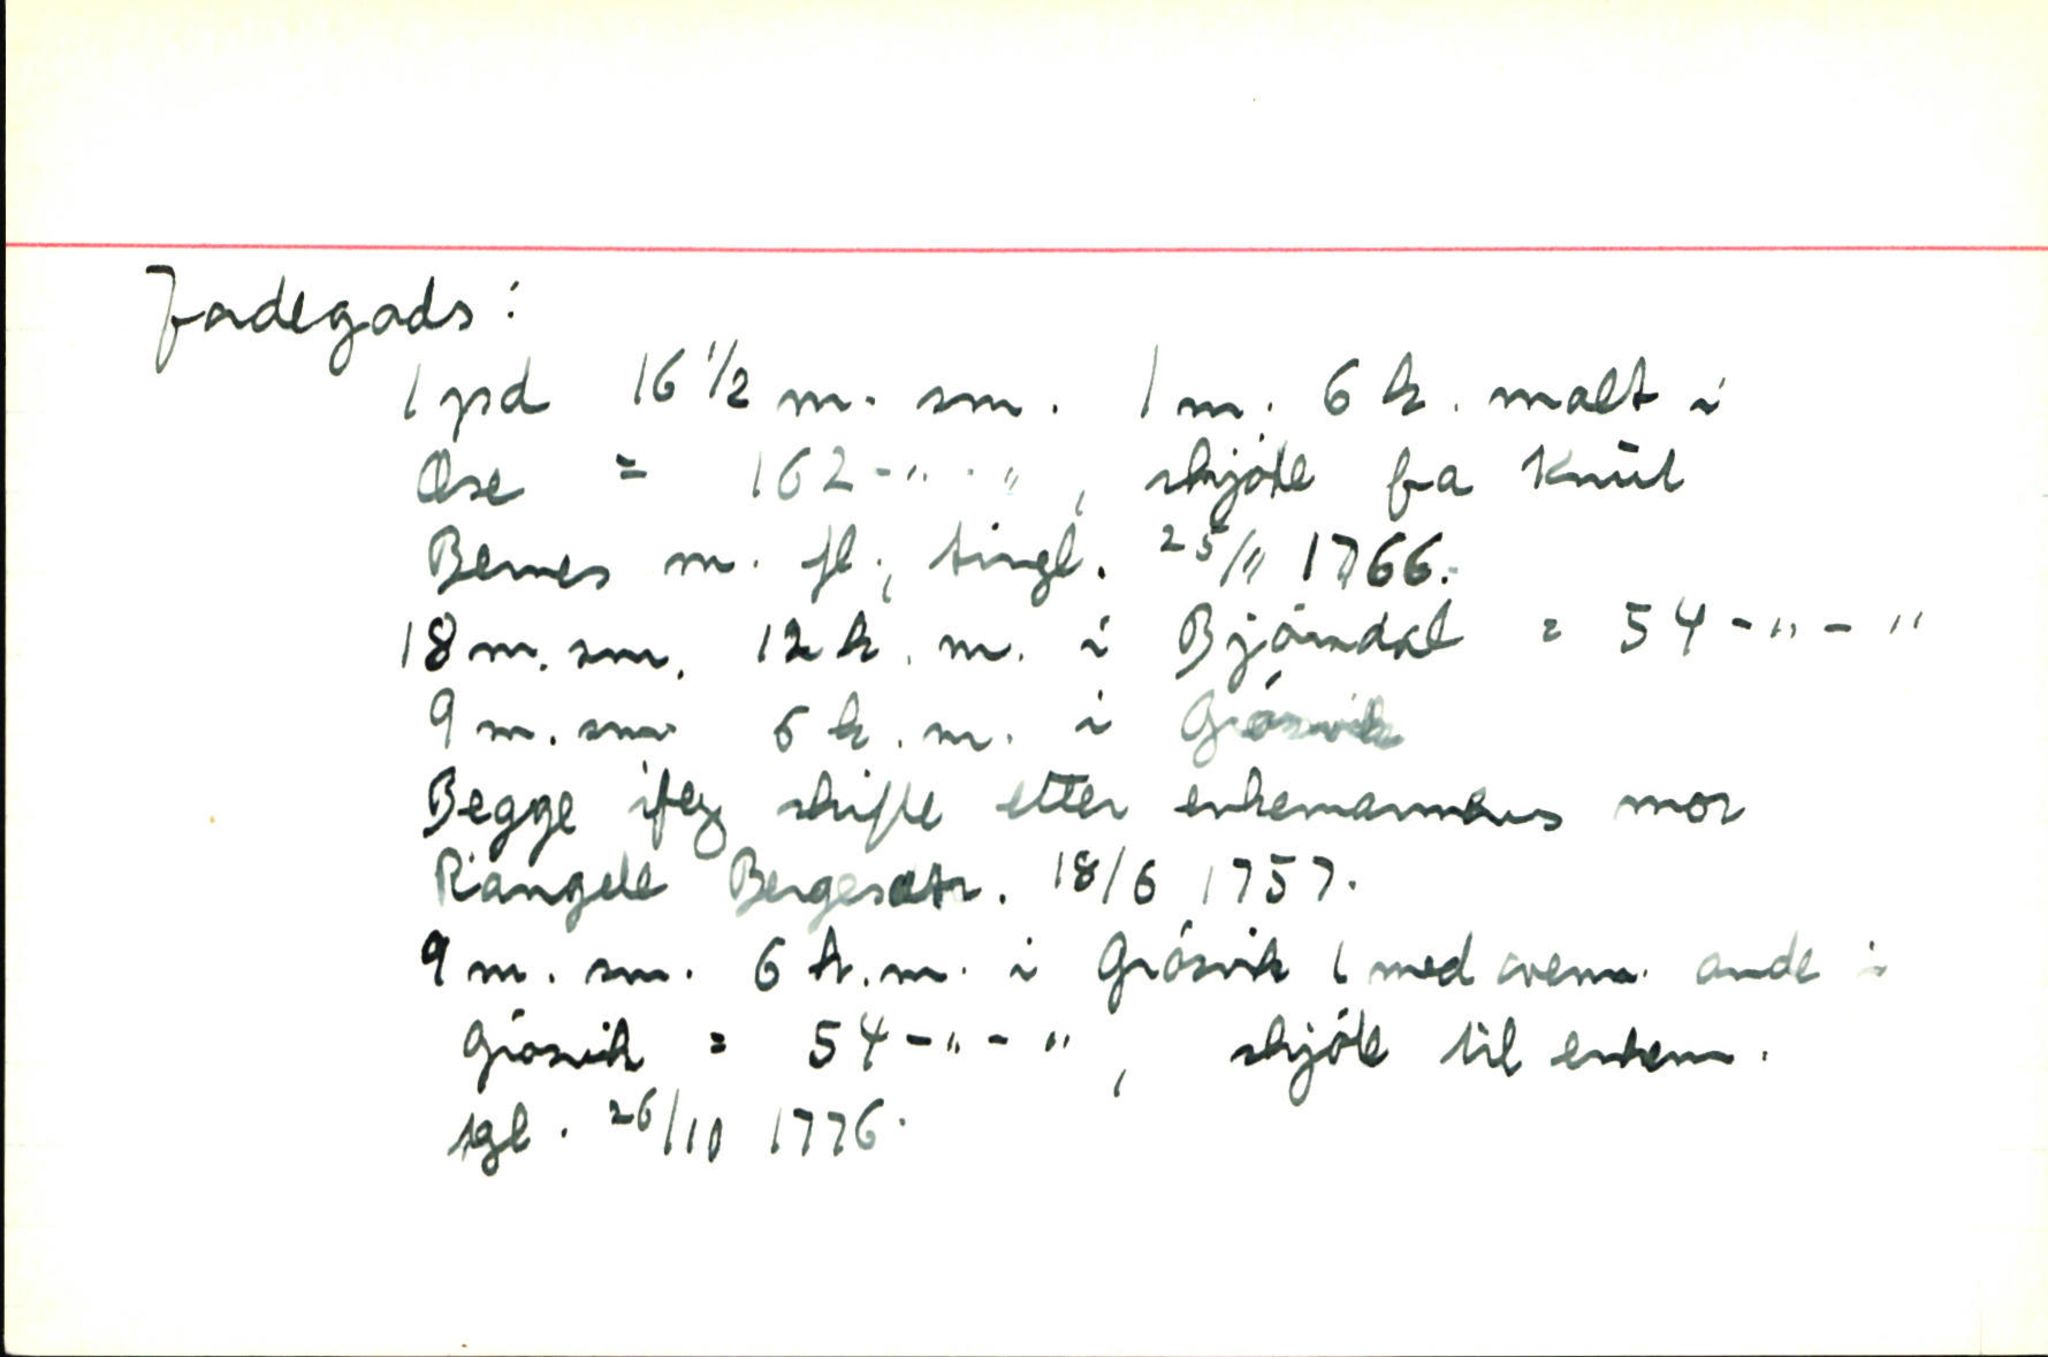 Jordegods:
1 pd 16 1/2 m. sm. 1 m. 6 k. malt i
Øse = 162-"-", skjöte fra Knut
Bernes m. fl., tingl. 25/11 1766.
18 m. sm. 12 k. m. i Björndal = 54-"-"
9 m. sm 6 k. m. i Grösvik
Begge iflg skifte etter enkemannens mor
Rangele Bergesdtr. 18/6 1757.
9 m. sm. 6 k. m. i Grösvik ( med ovenn. ande i
Grösvik = 54-"-", skjöte til enkem.
tgl. 26/10 1776.